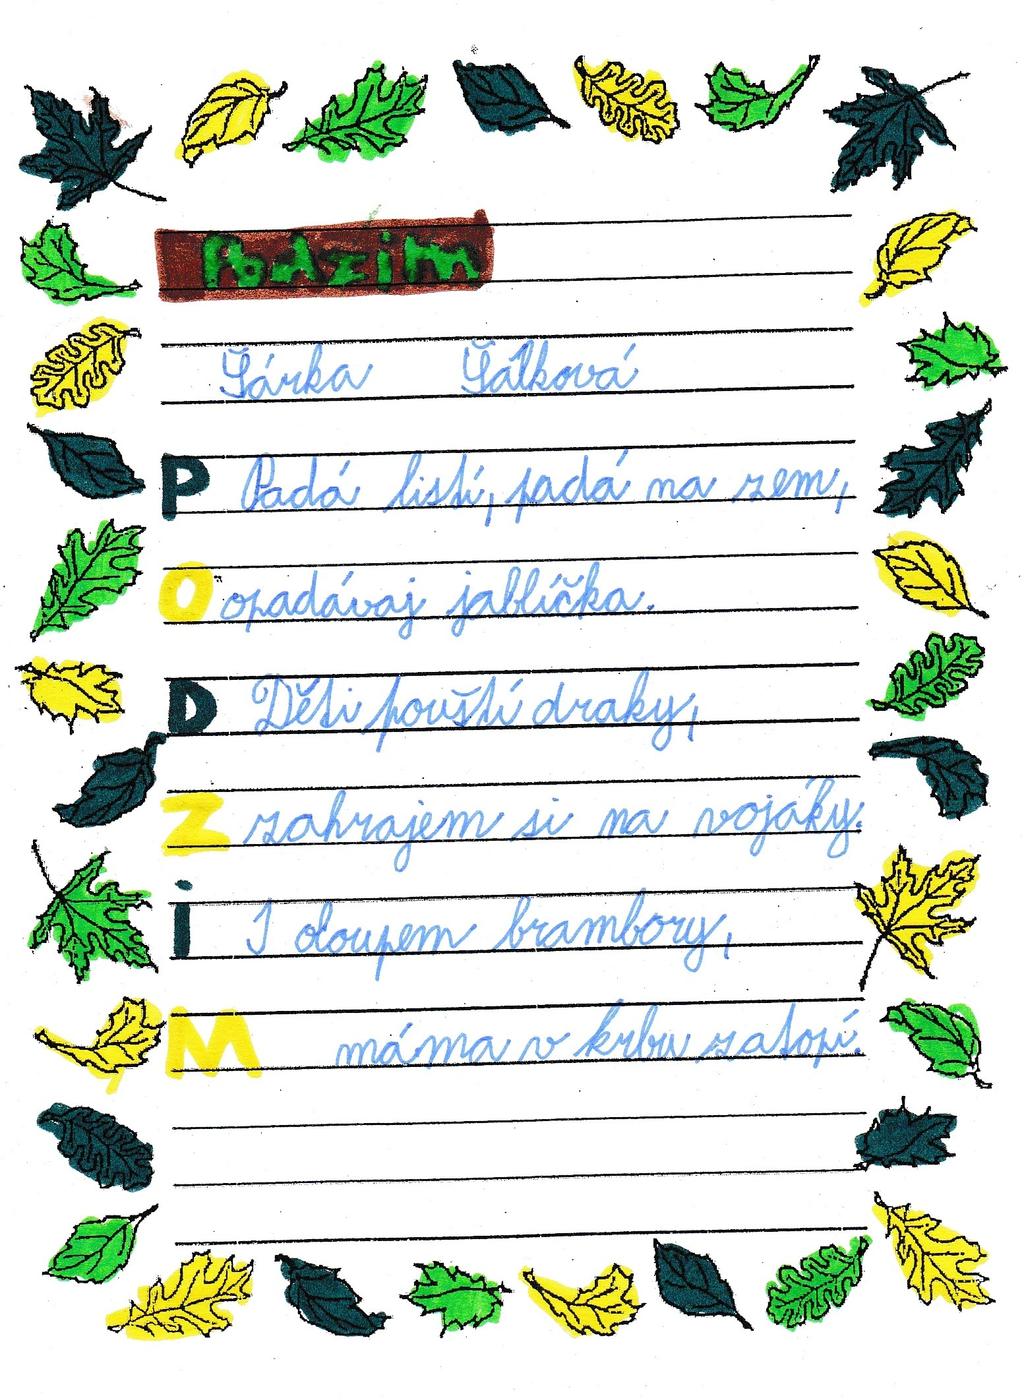 Podzim
Šárka Šálková
P Padá listí, padá na zem,
O opadávaj jablíčka.
D Děti pouští draky,
Z zahrajem si na vojáky.
i I oloupem brambory,
M máma v krbu zatopí.